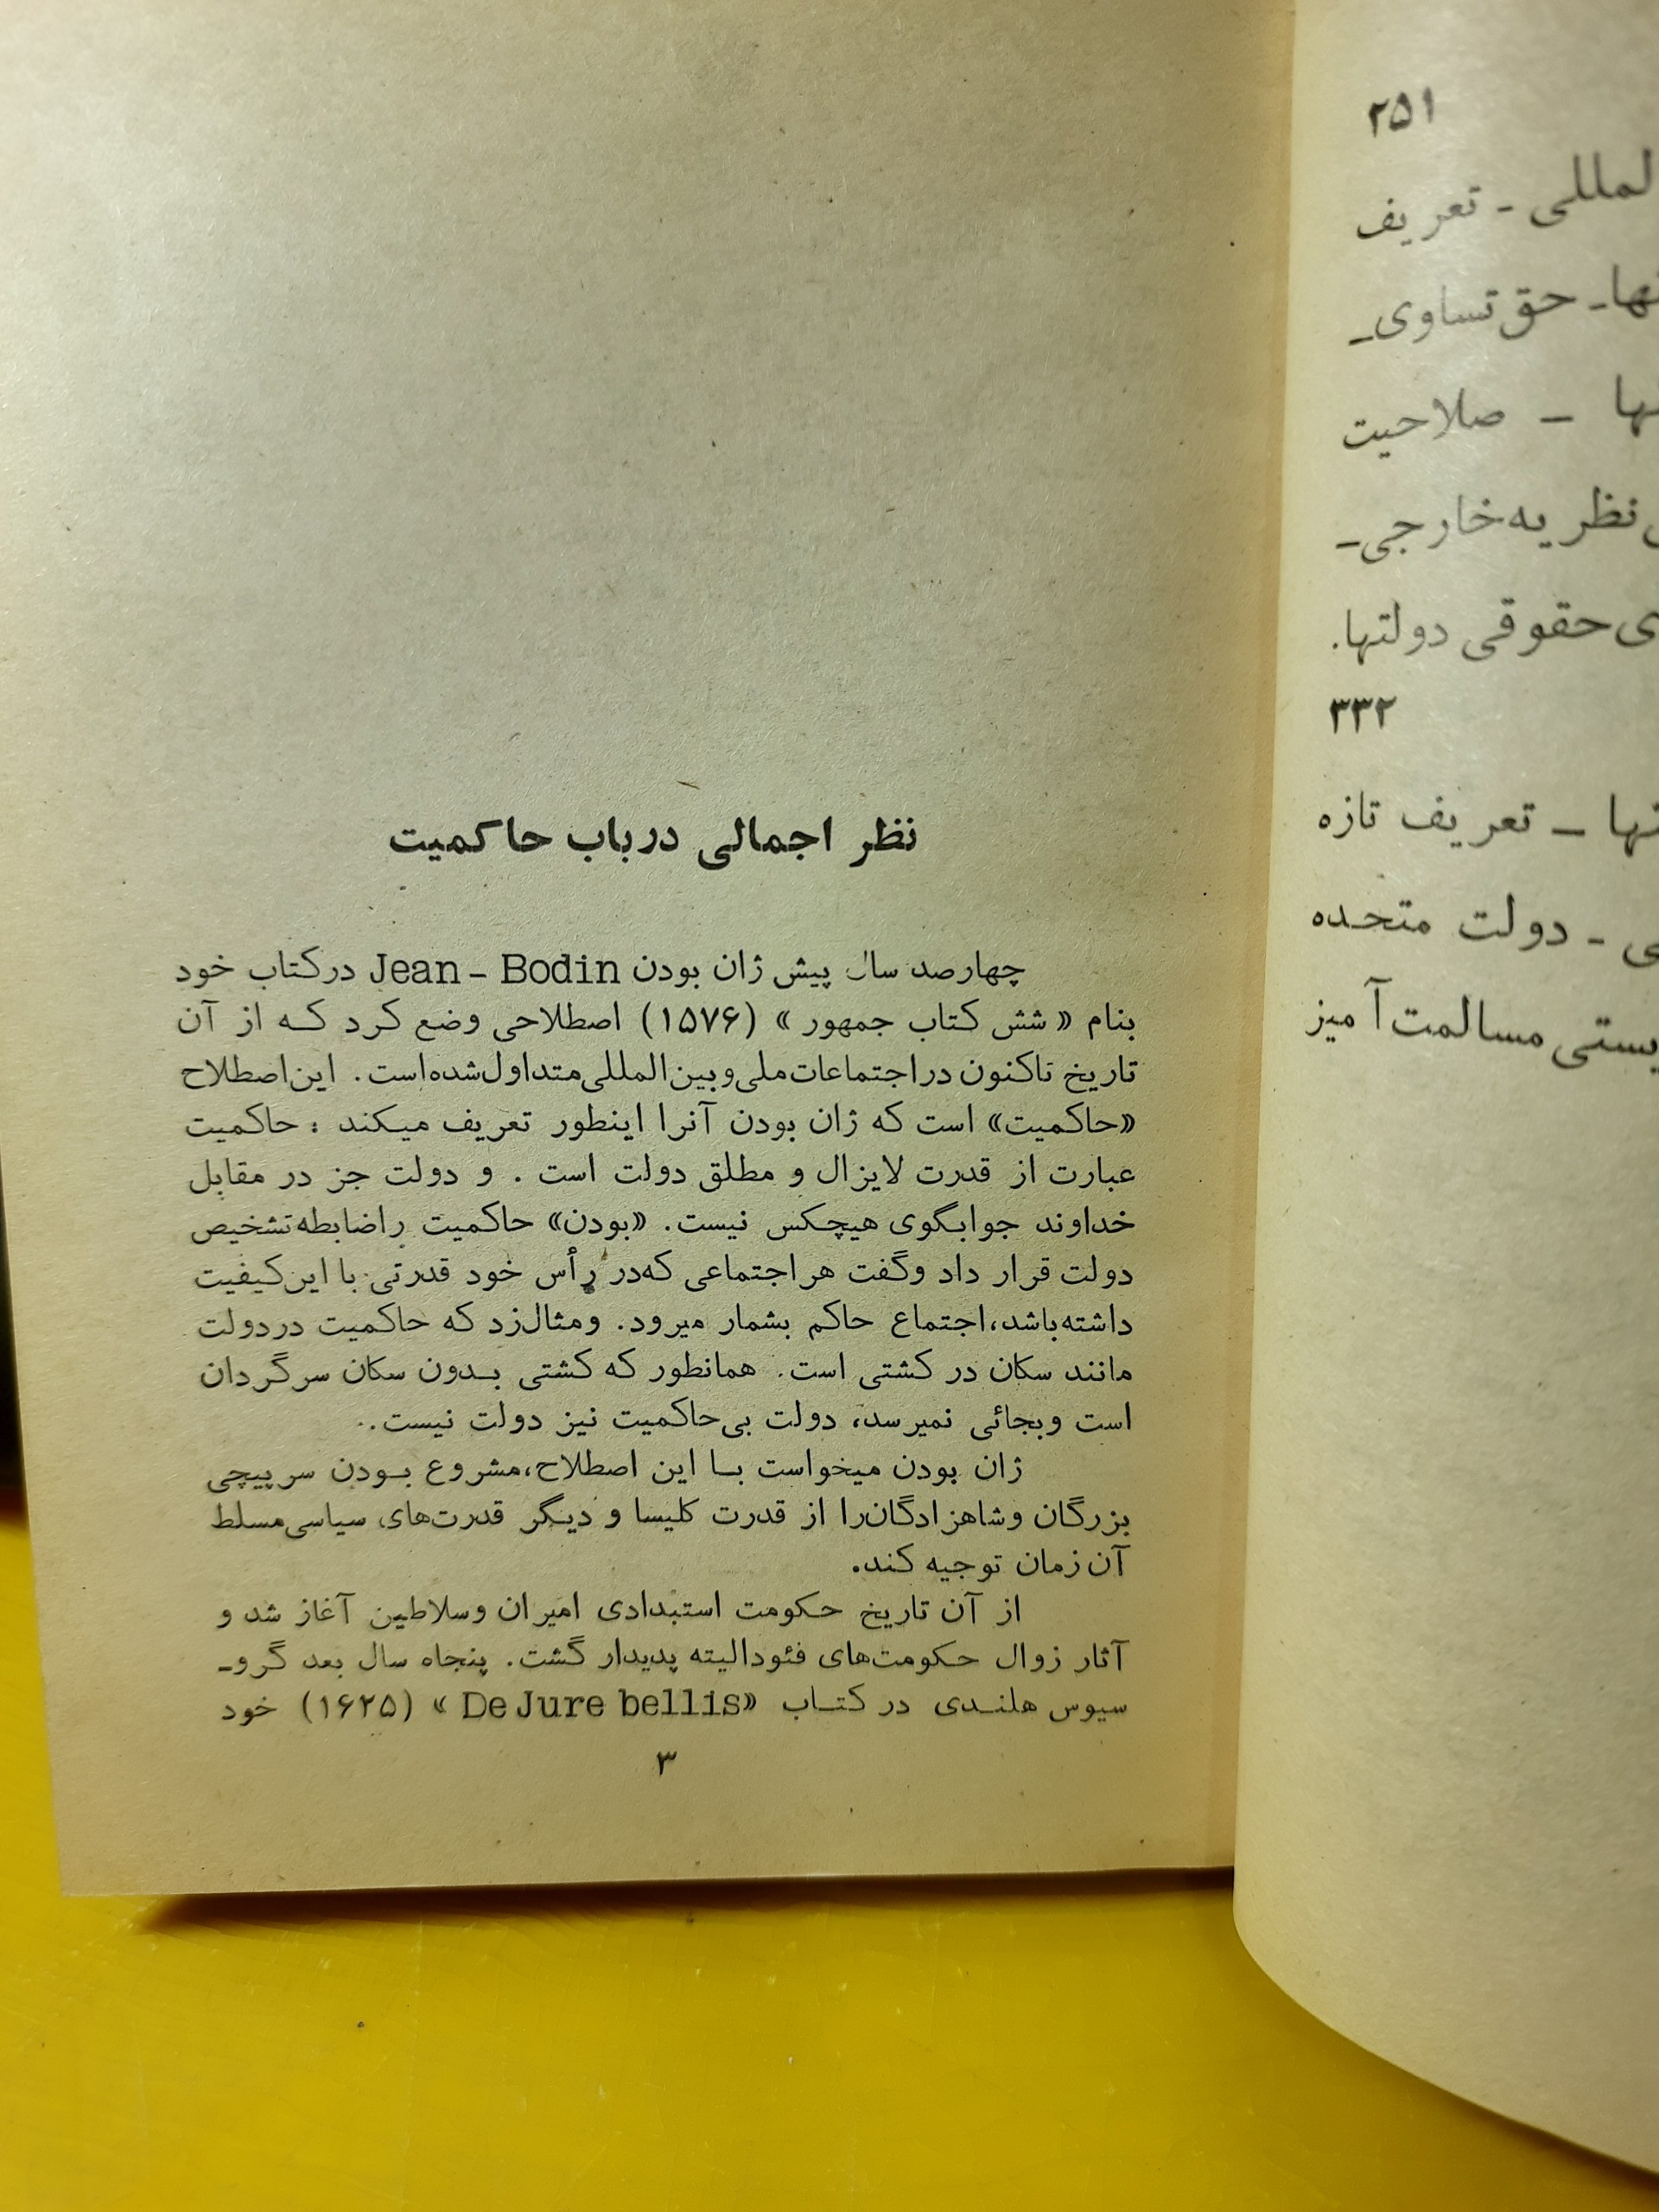 ۲۵۱
لمللی ـ تعریف
تها ـ حق تساوی ـ
تها ـ صلاحیت
نظریه خارجی ـ
ی حقوقی دولتها.
۳۳۲
تها ـ تعریف تازه
ی ـ دولت متحده
یستی مسالمت آمیز
نظر اجمالی درباب حاکمیت
چهارصد سال پیش ژان بودن Jean – Bodin درکتاب خود
بنام « شش کتاب جمهور » (۱۵۷۶) اصطلاحی وضع کرد کـه از آن
تاریخ تاکنون در اجتماعات ملی و بین‌المللی متداول شده است. این اصطلاح
«حاکمیت» است که ژان بودن آنرا اینطور تعریف میکند : حاکمیت
عبارت از قدرت لایزال و مطلق دولت است . و دولت جز در مقابل
خداوند جوابگوی هیچکس نیست. «بودن» حاکمیت را ضابطه تشخیص
دولت قرار داد و گفت هر اجتماعی که در رأس خود قدرتی با این کیفیت
داشته باشد، اجتماع حاکم بشمار میرود. و مثال زد که حاکمیت در دولت
مانند سکان در کشتی است. همانطور که کشتی بـدون سکان سرگردان
است و بجائی نمیرسد، دولت بی‌حاکمیت نیز دولت نیست..
ژان بودن میخواست بـا این اصطلاح، مشروع بـودن سرپیچی
بزرگان و شاهزادگان را از قدرت کلیسا و دیگر قدرت‌های سیاسی مسلط
آن زمان توجیه کند.
از آن تاریخ حکومت استبدادی امیران و سلاطین آغاز شد و
آثار زوال حکومت‌های فئودالیته پدیدار گشت. پنجاه سال بعد گروـ
سیوس هلنـدی در کتـاب «De Jure bellis» (۱۶۲۵) خود
۳